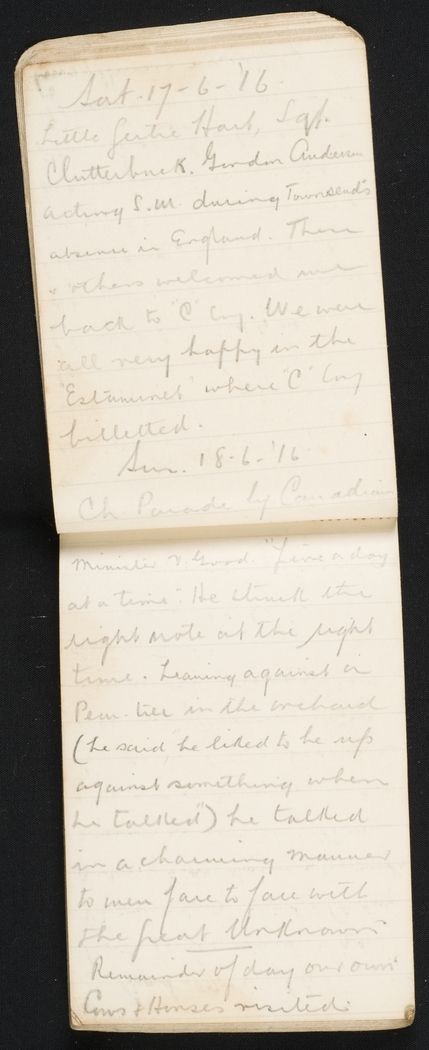 Sat. 17-6-'16.
Little Gertie Hart, Sgt.
Clutterbuck. Gordon Anderson
acting S.M. during Townsend's
absence in England. These
& others welcomed me
back to "C" Coy. We were
all very happy in the
'Estaminet' where "C" Coy
billetted.
Sun. 18-6-'16
Ch. Parade by Canadian
Minister V. Good. "Live a day
at a time". He struck the
right note at the right
time. Leaning against a
Pear-tree in the orchard
(he said "he liked to be up
against something when
he talked") he talked
in a charming manner
to men face to face with
the great Unknown.
Remainder of day our own.
Cows & Horses visited.